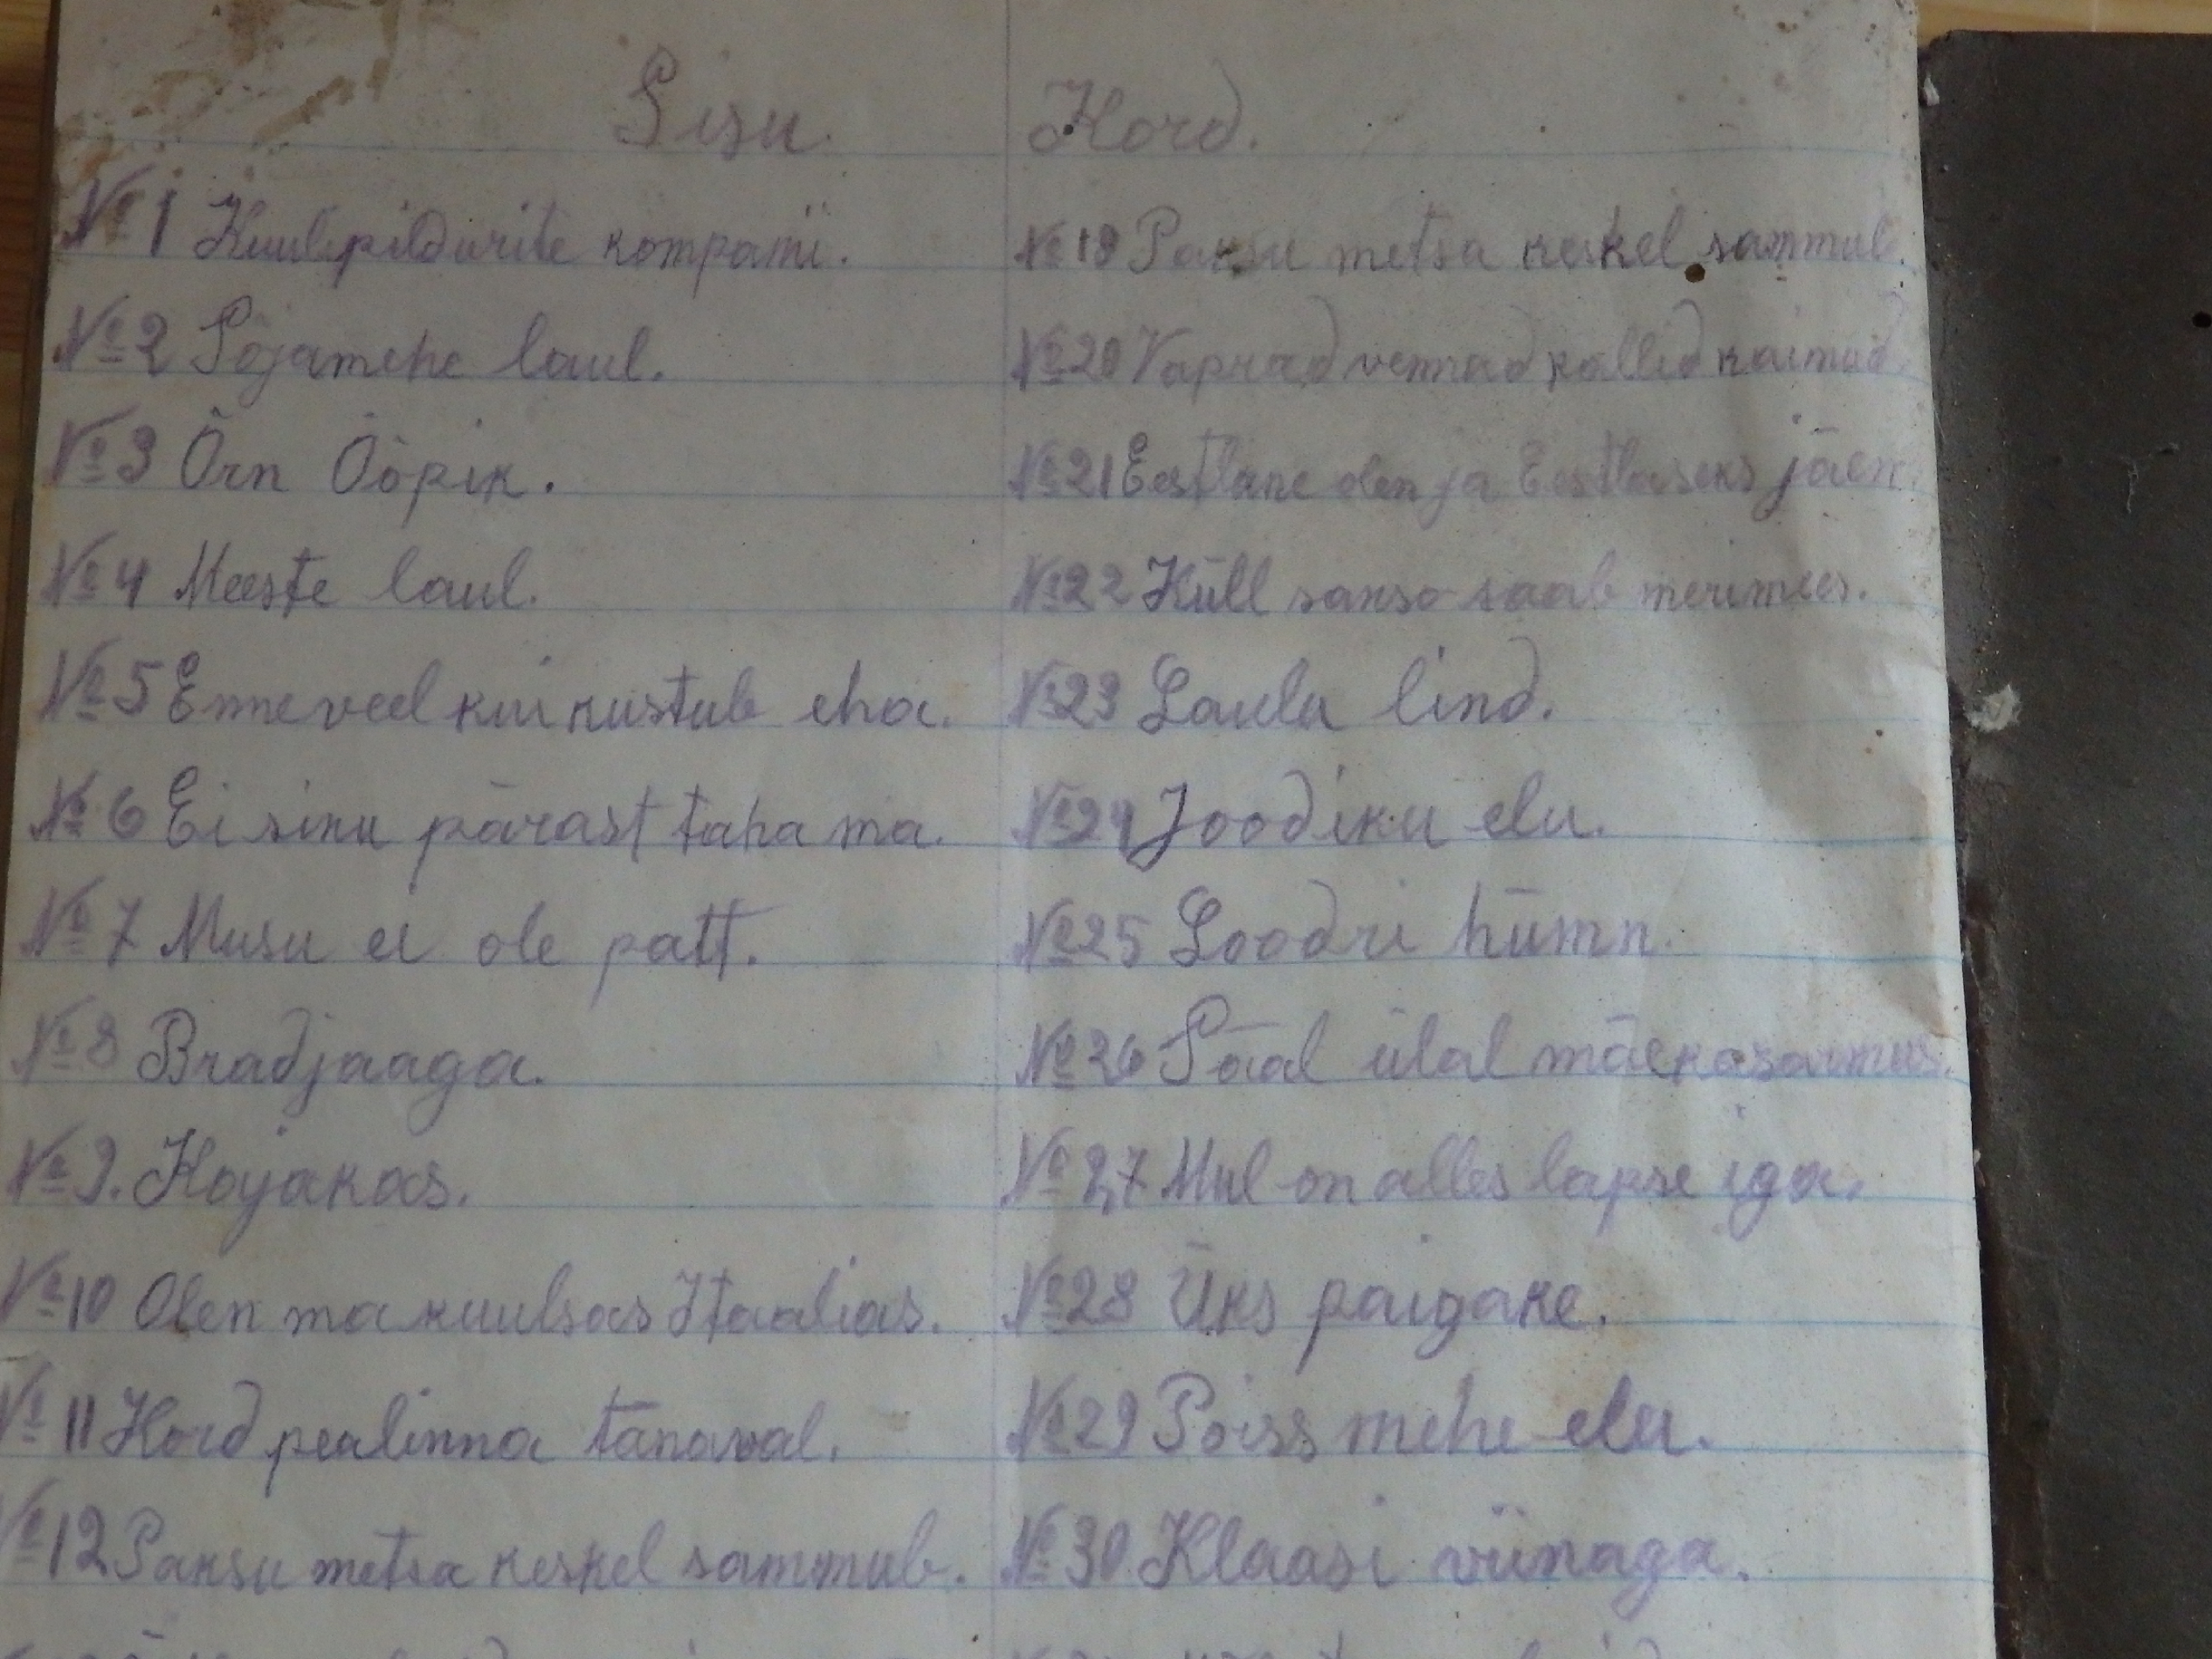 Sisu Kord.
№1 Kuulipildurite kompanii.
№2 Sõjamehe laul.
№3 Õrn Ööpik.
№4 Meeste laul.
№5 Enne veel kui kustub eha.
№6 Ei sinu pärast taha ma.
№7 Musu ei ole patt.
№8 Bradjaaga.
№9. Kojakas.
№10 Olen ma kuulsas Itaalias.
№11 Kord pealinna tänaval.
№12 Paksu metsa keskel sammub.
№19 Paksu metsa keskel sammub.
№20 Vaprad vennad kallid kaimud.
№21 Eestlane olen ja Eestlaseks jäen.
№22 Küll sakso saab merimees.
№23 Laulu lind.
№24 Joodiku elu.
№25 Loodri hümn.
№26 Sääl ülal mäekasarmus.
№27 Mul on alles lapse iga.
№28 Üks paigake.
№29 Poiss mehe elu.
№30 Klaasi viinaga.